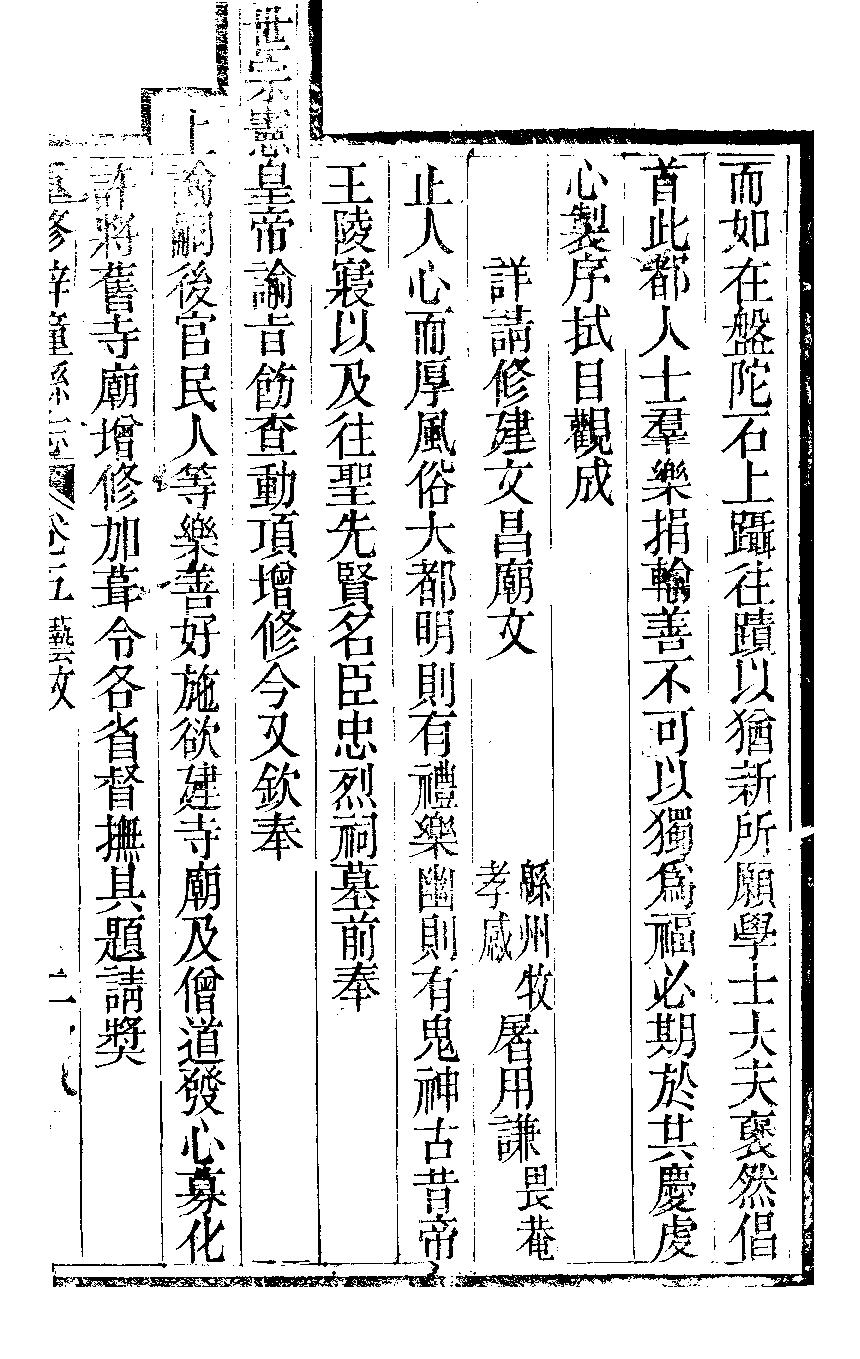 而如在盤陀石上躡往蹟以猶新所願學士大夫褎然倡
首此都人士羣樂捐輸善不可以獨爲福必期於共慶虔
心製序拭目觀成
詳請修建文昌廟文 緜州牧 孝感 屠用謙 畏菴
止人心而厚風俗大都明則有禮樂幽則有鬼神古昔帝
王陵寢以及往聖先賢名臣忠烈祠墓前奉
世宗憲皇帝諭旨飭查動項增修今又欽奉
上諭嗣後官民人等樂善好施欲建寺廟及僧道發心募化
許將舊寺廟增修加葺令各省督撫具題請獎
重修梓潼縣志 卷五 藝文 二